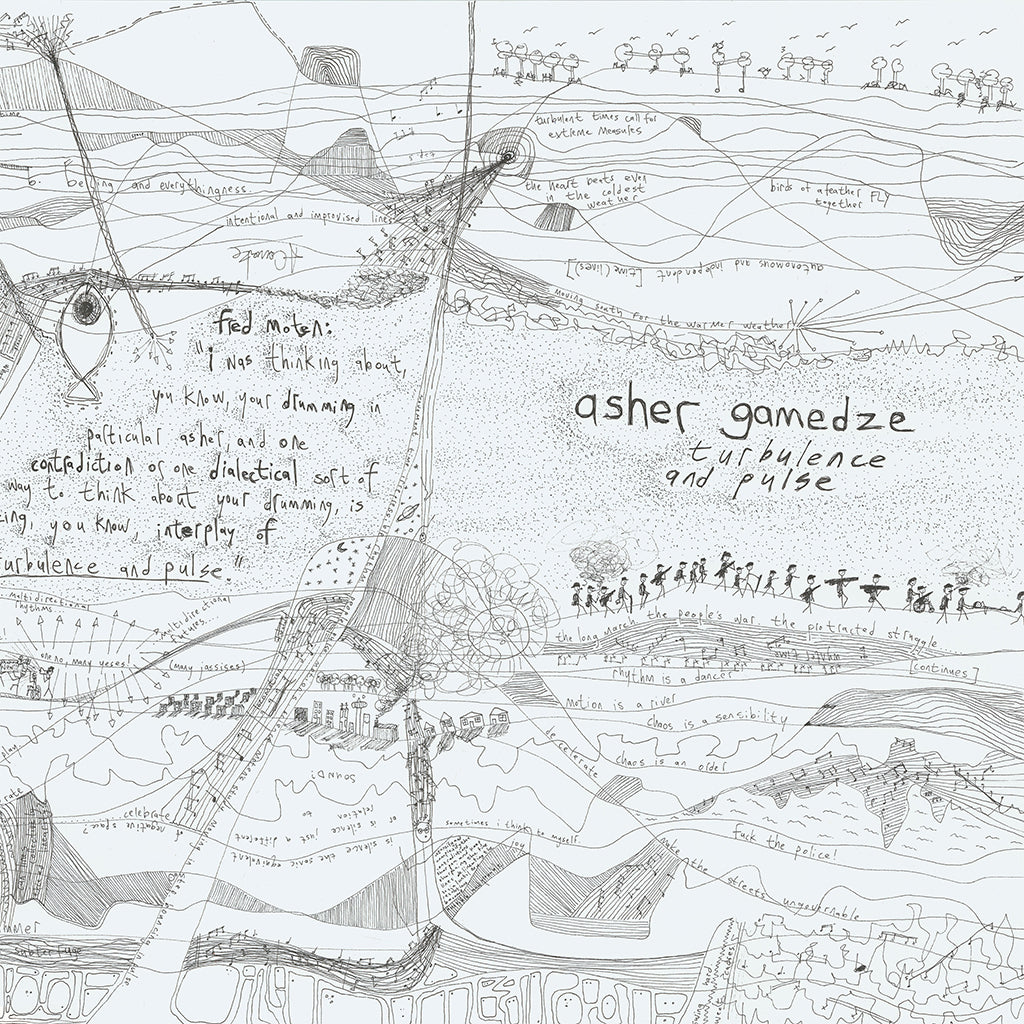 turbulent times call for
extreme measures
time
b. Being and everythingness.
the heart beats even
in the coldest
weather
birds of a feather FLY
together
intentional and improvised lines
autonomous and independent [time(lines)]
moving south for the warmer weather
fred moten:
"i was thinking about,
you know, your drumming in
particular asher, and one
contradiction or one dialectical sort of
way to think about your drumming, is
you know, interplay of
turbulence and pulse."
asher gamedze
turbulence
and pulse
multidirectional
rhythms...
multidirectional
futures...
one no, many yeses!
(many jassises)
the long march the people's war the protracted struggle
[continues]
rhythm is a dancer
motion is a river
chaos is a sensibility
decelerate
chaos is an order
SOUND!
celebrate
negative space?
is silence the sonic equivalent
or is silence just a different
relation to
sometimes i think to myself.
joy
fuck the police!
make the streets ungovernable
subterfuge